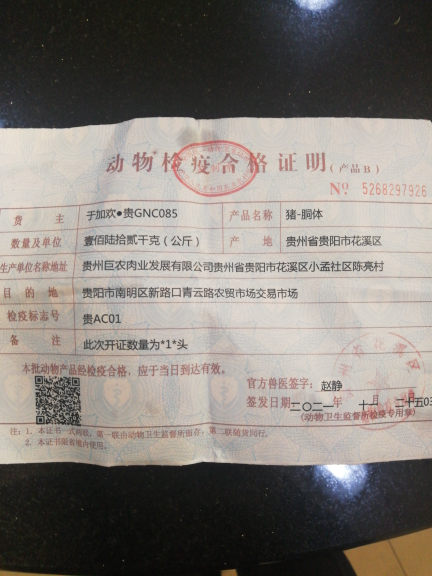 动物检疫合格证明(产品B)
№ 5268297926
货 主 于加欢●贵GNC085 产品名称 猪-胴体
数量及单位 壹佰陆拾贰千克（公斤） 产 地 贵州省贵阳市花溪区
生产单位名称地址 贵州巨农肉业发展有限公司贵州省贵阳市花溪区小孟社区陈亮村
目 的 地 贵阳市南明区新路口青云路农贸市场交易市场
检疫标志号 贵AC01
备 注 此次开证数量为*1*头
本批动物产品经检疫合格，应于当日到达有效。
官方兽医签字: 赵静
签发日期 二〇二一年 十月 二十五日
(动物卫生监督所检疫专用章)
注：1、本证书一式两联，第一联由动物卫生监督所留存，第二联随货同行。
2、本证书限省境内使用。